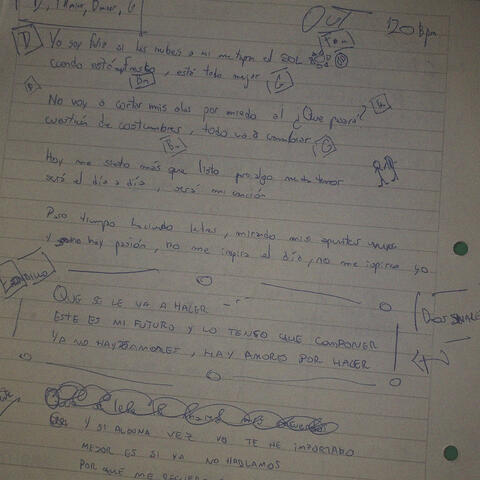 D, F#min, Bmin, G
OUT
120 bpm
F#m
D Yo soy feliz si las nubes a mi me tapan el SOL
cuando está, está todo mejor G
Bm
No voy a cortar mis alas por miedo al ¿Que pasará?
cuestión de costumbres, todo va a cambiar G
Bm
Hoy me siento más que listo pa algo temor
será el día a día, será mi canción
Paso tiempo haciendo letras, mirando mis apuntes
y no hay pasión, no me inspira el día, no me inspiro yo
Estribillo
QUE SE LE VA A HACER
ESTE ES MI FUTURO Y LO TENGO QUE COMPONER
YA NO HAY AMORES, HAY AMORES POR HACER
Y SI ALGUNA VEZ YO TE HE IMPORTADO
MEJOR ES SI YA NO HABLAMOS
POR QUE ME